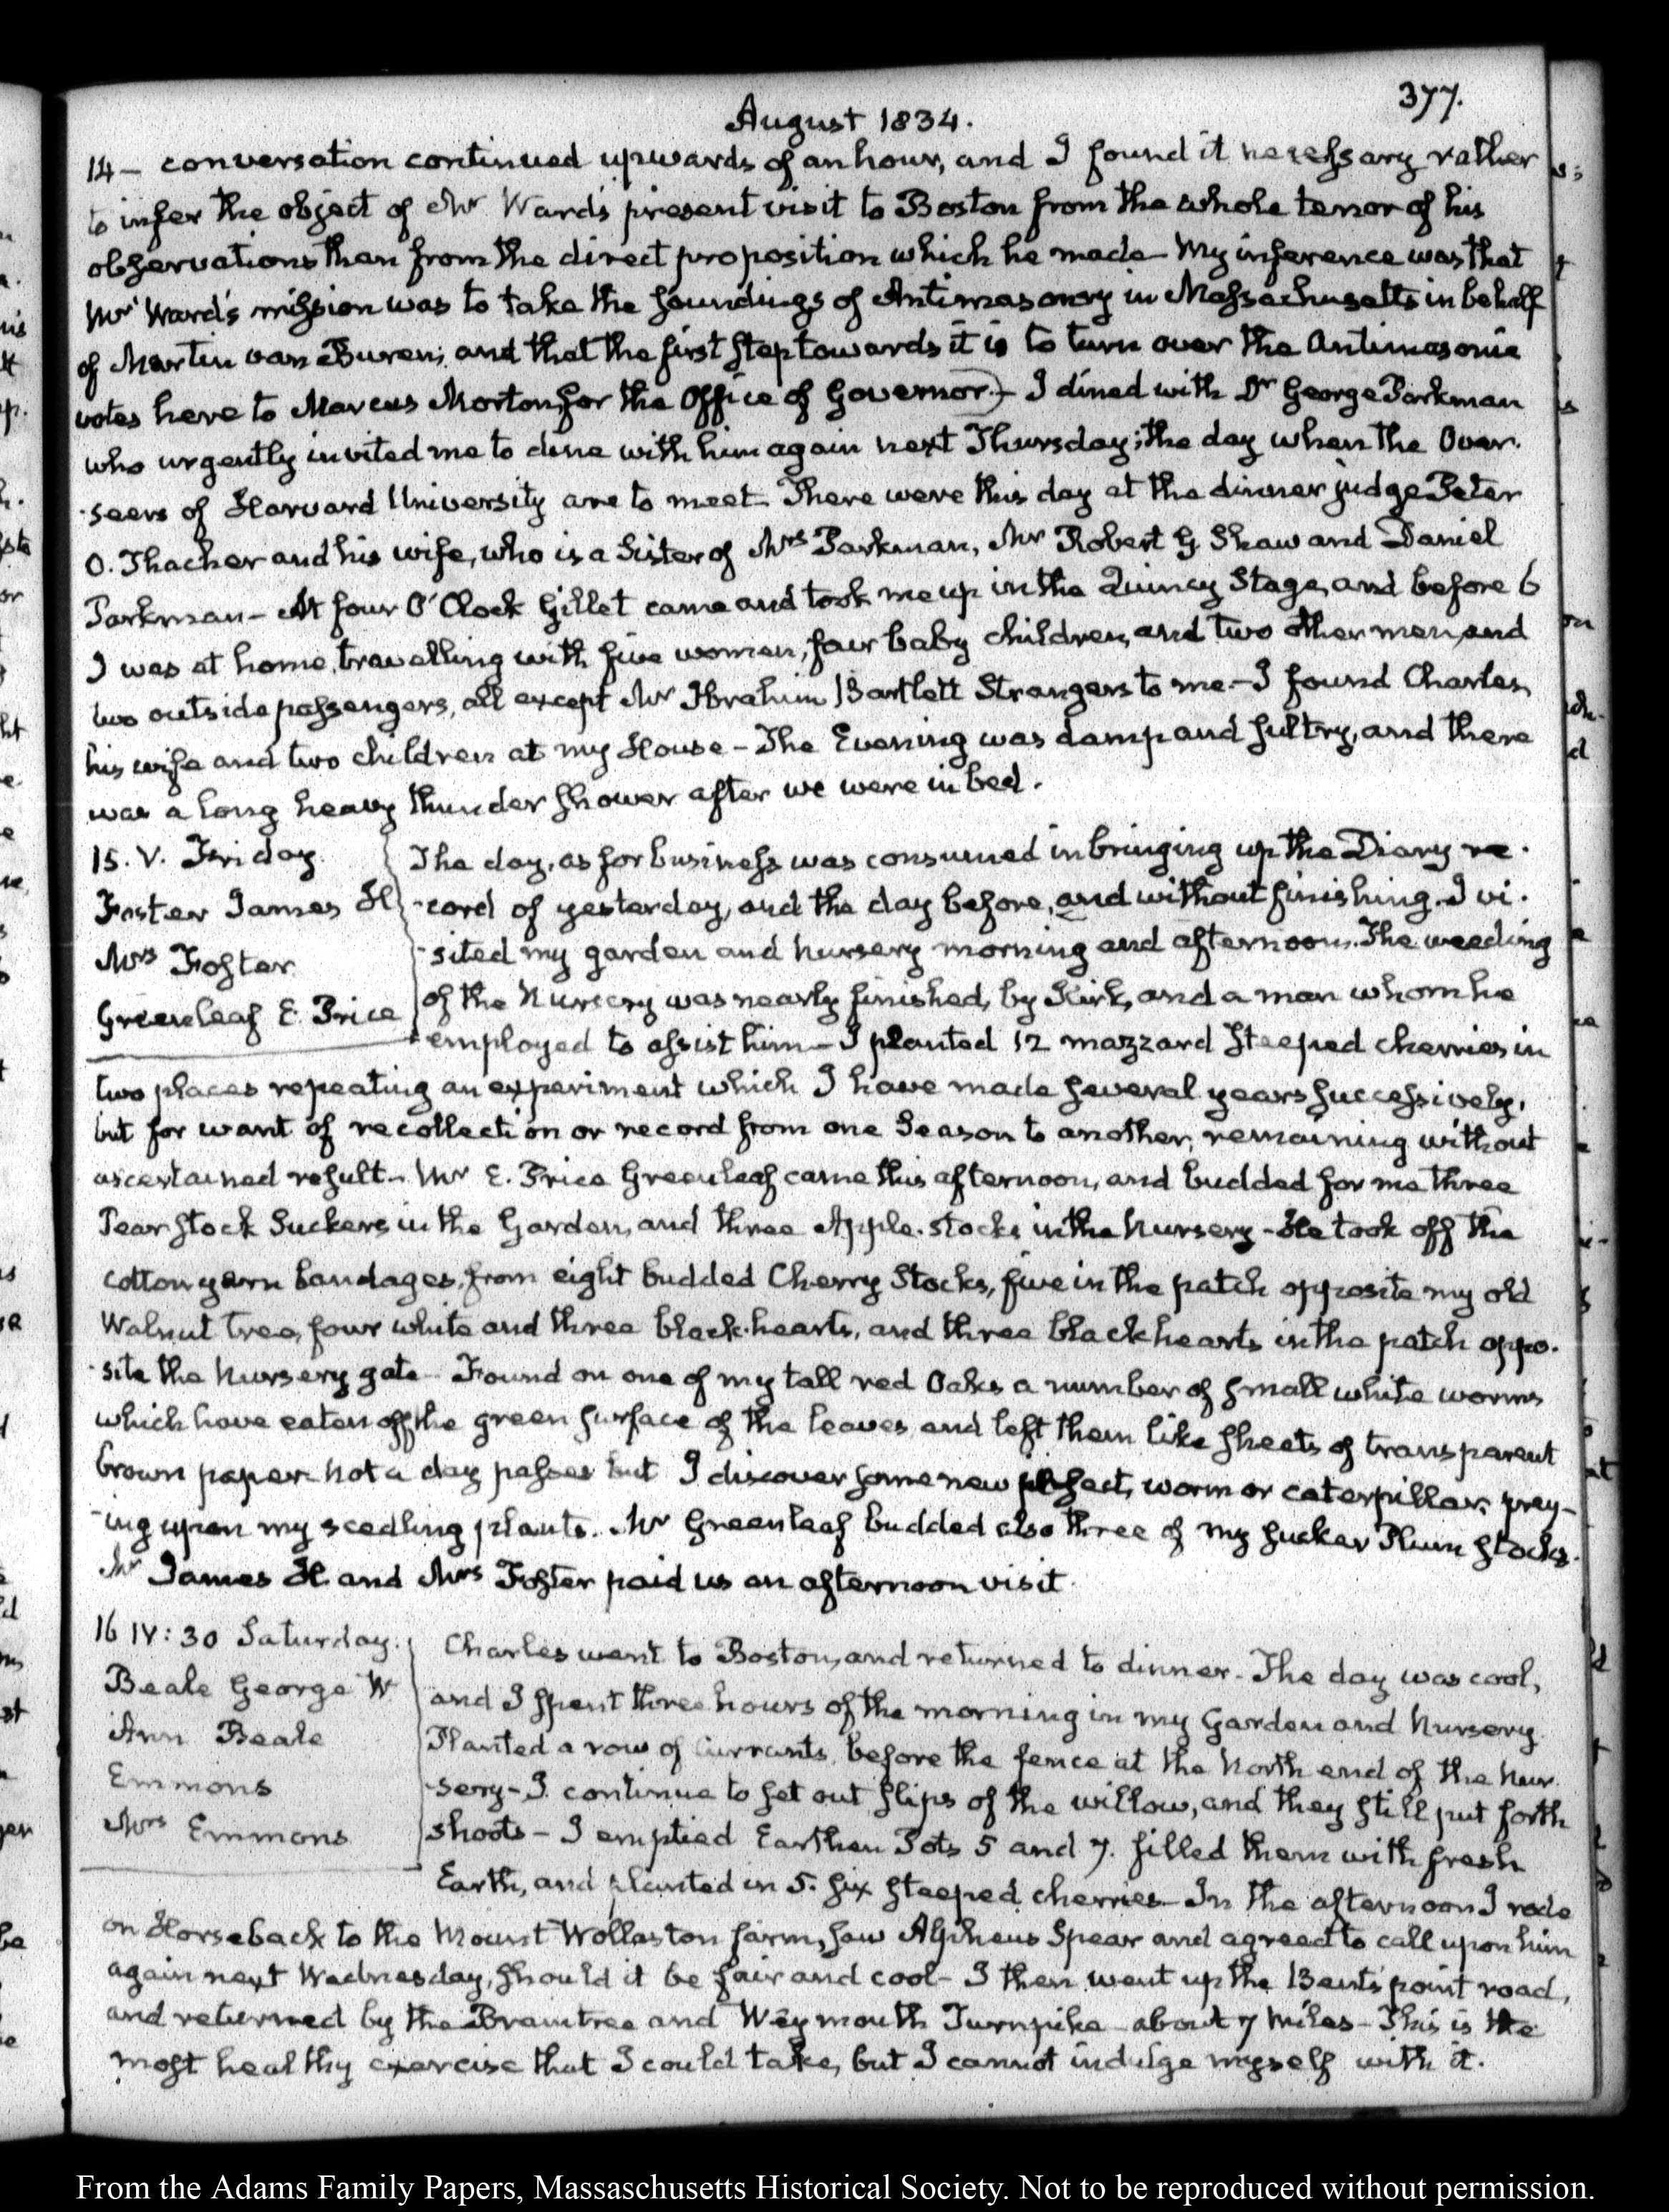 377.
August 1834.
14 — conversation continued upwards of an hour, and I found it necessary rather
to infer the object of Mr Ward's present visit to Boston from the whole tenor of his
observations than from the direct proposition which he made — My inference was that
Mr Ward's mission was to take the soundings of Antimasonry in Massachusetts in behalf
of Martin van Buren; and that the first step towards it is to turn over the Antimasonic
votes here to Marcus Morton, for the Office of Governor.) — I dined with Dr George Parkman
who urgently invited me to dine with him again next Thursday; the day when the Over-
-seers of Harvard University are to meet — There were this day at the dinner judge Peter
O. Thacher and his wife, who is a Sister of Mrs Parkman, Mr Robert G. Shaw and Daniel
Parkman — At four O'Clock Gillet came and took me up in the Quincy Stage, and before 6
I was at home, travelling with five women, four baby children, and two other men, and
two outside passengers, all except Mr Ibrahim Bartlett Strangers to me — I found Charles,
his wife and two children at my House — The Evening was damp and sultry, and there
was a long heavy thunder shower after we were in bed.
15. V. Friday.
Foster James H
Mrs Foster
Greenleaf E. Price
The day, as for business was consumed in bringing up the Diary re-
-cord of yesterday, and the day before, and without finishing. I vi-
-sited my garden and nursery morning and afternoon. The weeding
of the Nursery was nearly finished, by Kirk, and a man whom he
employed to assist him — I planted 12 mazzard steeped cherries in
two places repeating an experiment which I have made several years successively,
but for want of recollection or record from one Season to another, remaining without
ascertained result — Mr E. Price Greenleaf came this afternoon, and budded for me three
Pear stock Suckers in the Garden, and three Apple-stocks in the Nursery — He took off the
cotton yarn bandages, from eight budded Cherry Stocks, five in the patch opposite my old
Walnut tree, four white and three black-hearts, and three blackhearts in the patch oppo-
-site the Nursery gate — Found on one of my tall red Oaks a number of small white worms
which have eaten off the green surface of the leaves and left them like sheets of transparent
brown paper. Not a day passes but I discover some new insect, worm or caterpillar, prey-
-ing upon my seedling plants. Mr Greenleaf budded also three of my sucker Plum stocks.
Mr James H. and Mrs Foster paid us an afternoon visit.
16 IV: 30 Saturday.
Beale George W.
Ann Beale
Emmons
Mrs Emmons
Charles went to Boston, and returned to dinner — The day was cool,
and I spent three hours of the morning in my Garden and Nursery.
Planted a row of Currants before the fence at the North end of the Nur-
-sery — I continue to set out slips of the willow, and they still put forth
shoots — I emptied Earthen Pots 5 and 7. filled them with fresh
Earth, and planted in 5. six steeped cherries — In the afternoon I rode
on Horseback to the Mount Wollaston farm, saw Alpheus Spear and agreed to call upon him
again next Wednesday, should it be fair and cool — I then went up the Bents' point road,
and returned by the Braintree and Weymouth Turnpike about 7 miles — This is the
most healthy exercise that I could take, but I cannot indulge myself with it.
From the Adams Family Papers, Massachusetts Historical Society. Not to be reproduced without permission.